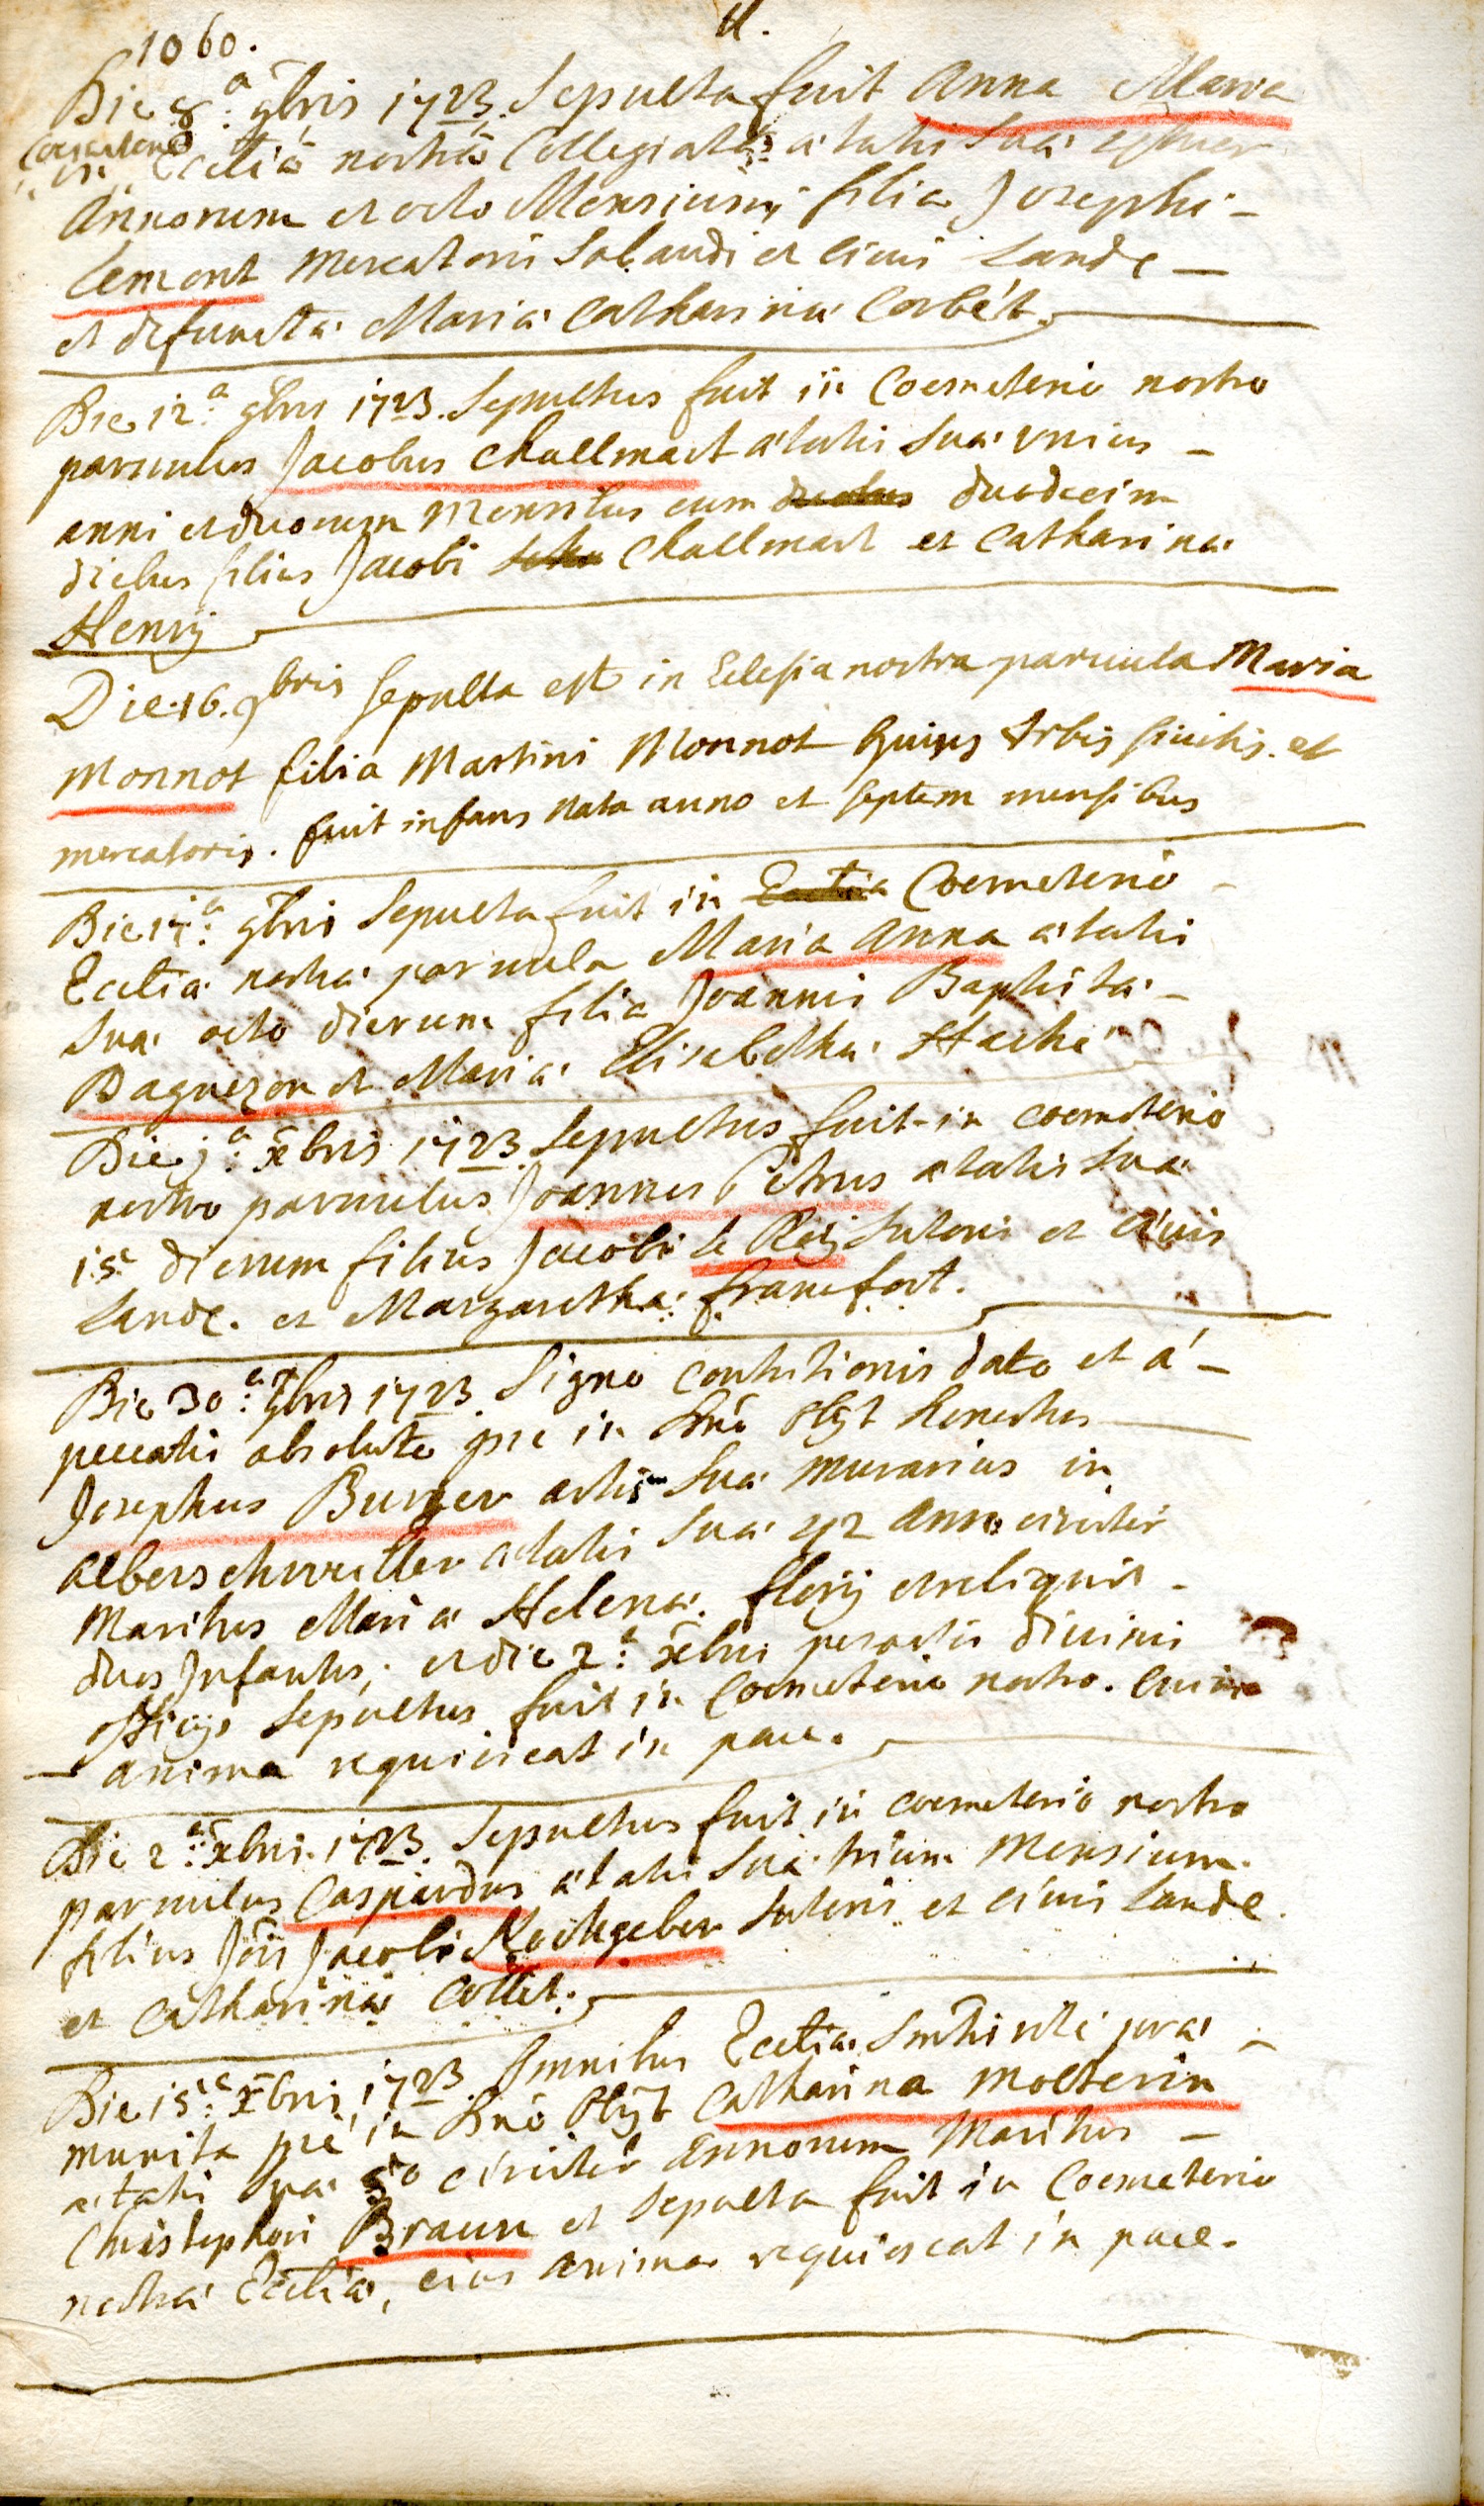 1060.
Die 8.a 9bris 1723. Sepulta fuit Anna Maria
in Ecclia nostra Collegiata ætatis suæ
Annorum et octo Mensium, filia Josephi -
Cemont Mercatoris et civis Lande -
et defunctæ Mariæ Catharinæ Corbét.
Die 12.a 9bris 1723. Sepultus fuit in Coemeterio nostro
parvulus Jacobus Challmart ætatis suæ unius -
anni et duorum Mensibus cum duodecim
diebus filius Jacobi Challmart et Catharinæ
Henrÿ
Die 16. 9bris sepulta est in Eclesia nostra parvula Maria
Monnot filia Martini Monnot hujus Urbis civitis. et
mercatoris. fuit infans nata anno et septem mensibus
Die 17.a 9bris Sepulta fuit in Coemeterio -
Eccliæ nostræ parvula Maria Anna ætatis
suæ octo dierum filia Joannis Baptistæ -
Bagnezon et Mariæ Elisabethæ Haché
Die j.a xbris 1723. Sepultus fuit in coemeterio
nostro parvulus Joannes Petrus ætatis suæ
15. dierum filius Jacobi le Roÿ Sutoris et civis
Lande. et Margarethæ francfort.
Die 30.a 9bris 1723. Signo contritionis dato et á -
peccatis absolute pie in Dnō obijt honestus
Josephus Burger artis suæ murarius in
Alberschweiller ætatis suæ 42 Anno circiter
Maritus Mariæ Helenæ flerÿ et reliquit -
duos Infantes, et die 2.a xbris peractis divinis
officijs sepultus fuit in Coemeterio nostro. Cuius
anima requiescat in pace.
Die 2.a xbris 1723. Sepultus fuit in coemeterio nostro
parvulus Caspardus ætatis suæ trium Mensium.
filius Jois Jacobi Kochgeber Sutoris et civis Lande.
et Catharinæ Collet.
Die 15.a xbris 1723. Omnibus Eccliæ
munita pie in Dnō obijt Catharina Molterin
ætatis suæ 50 circiter Annorum Maritus -
Christophori Braun et sepulta fuit in Coemeterio
nostræ Eccliæ, eius anima requiescat in pace.